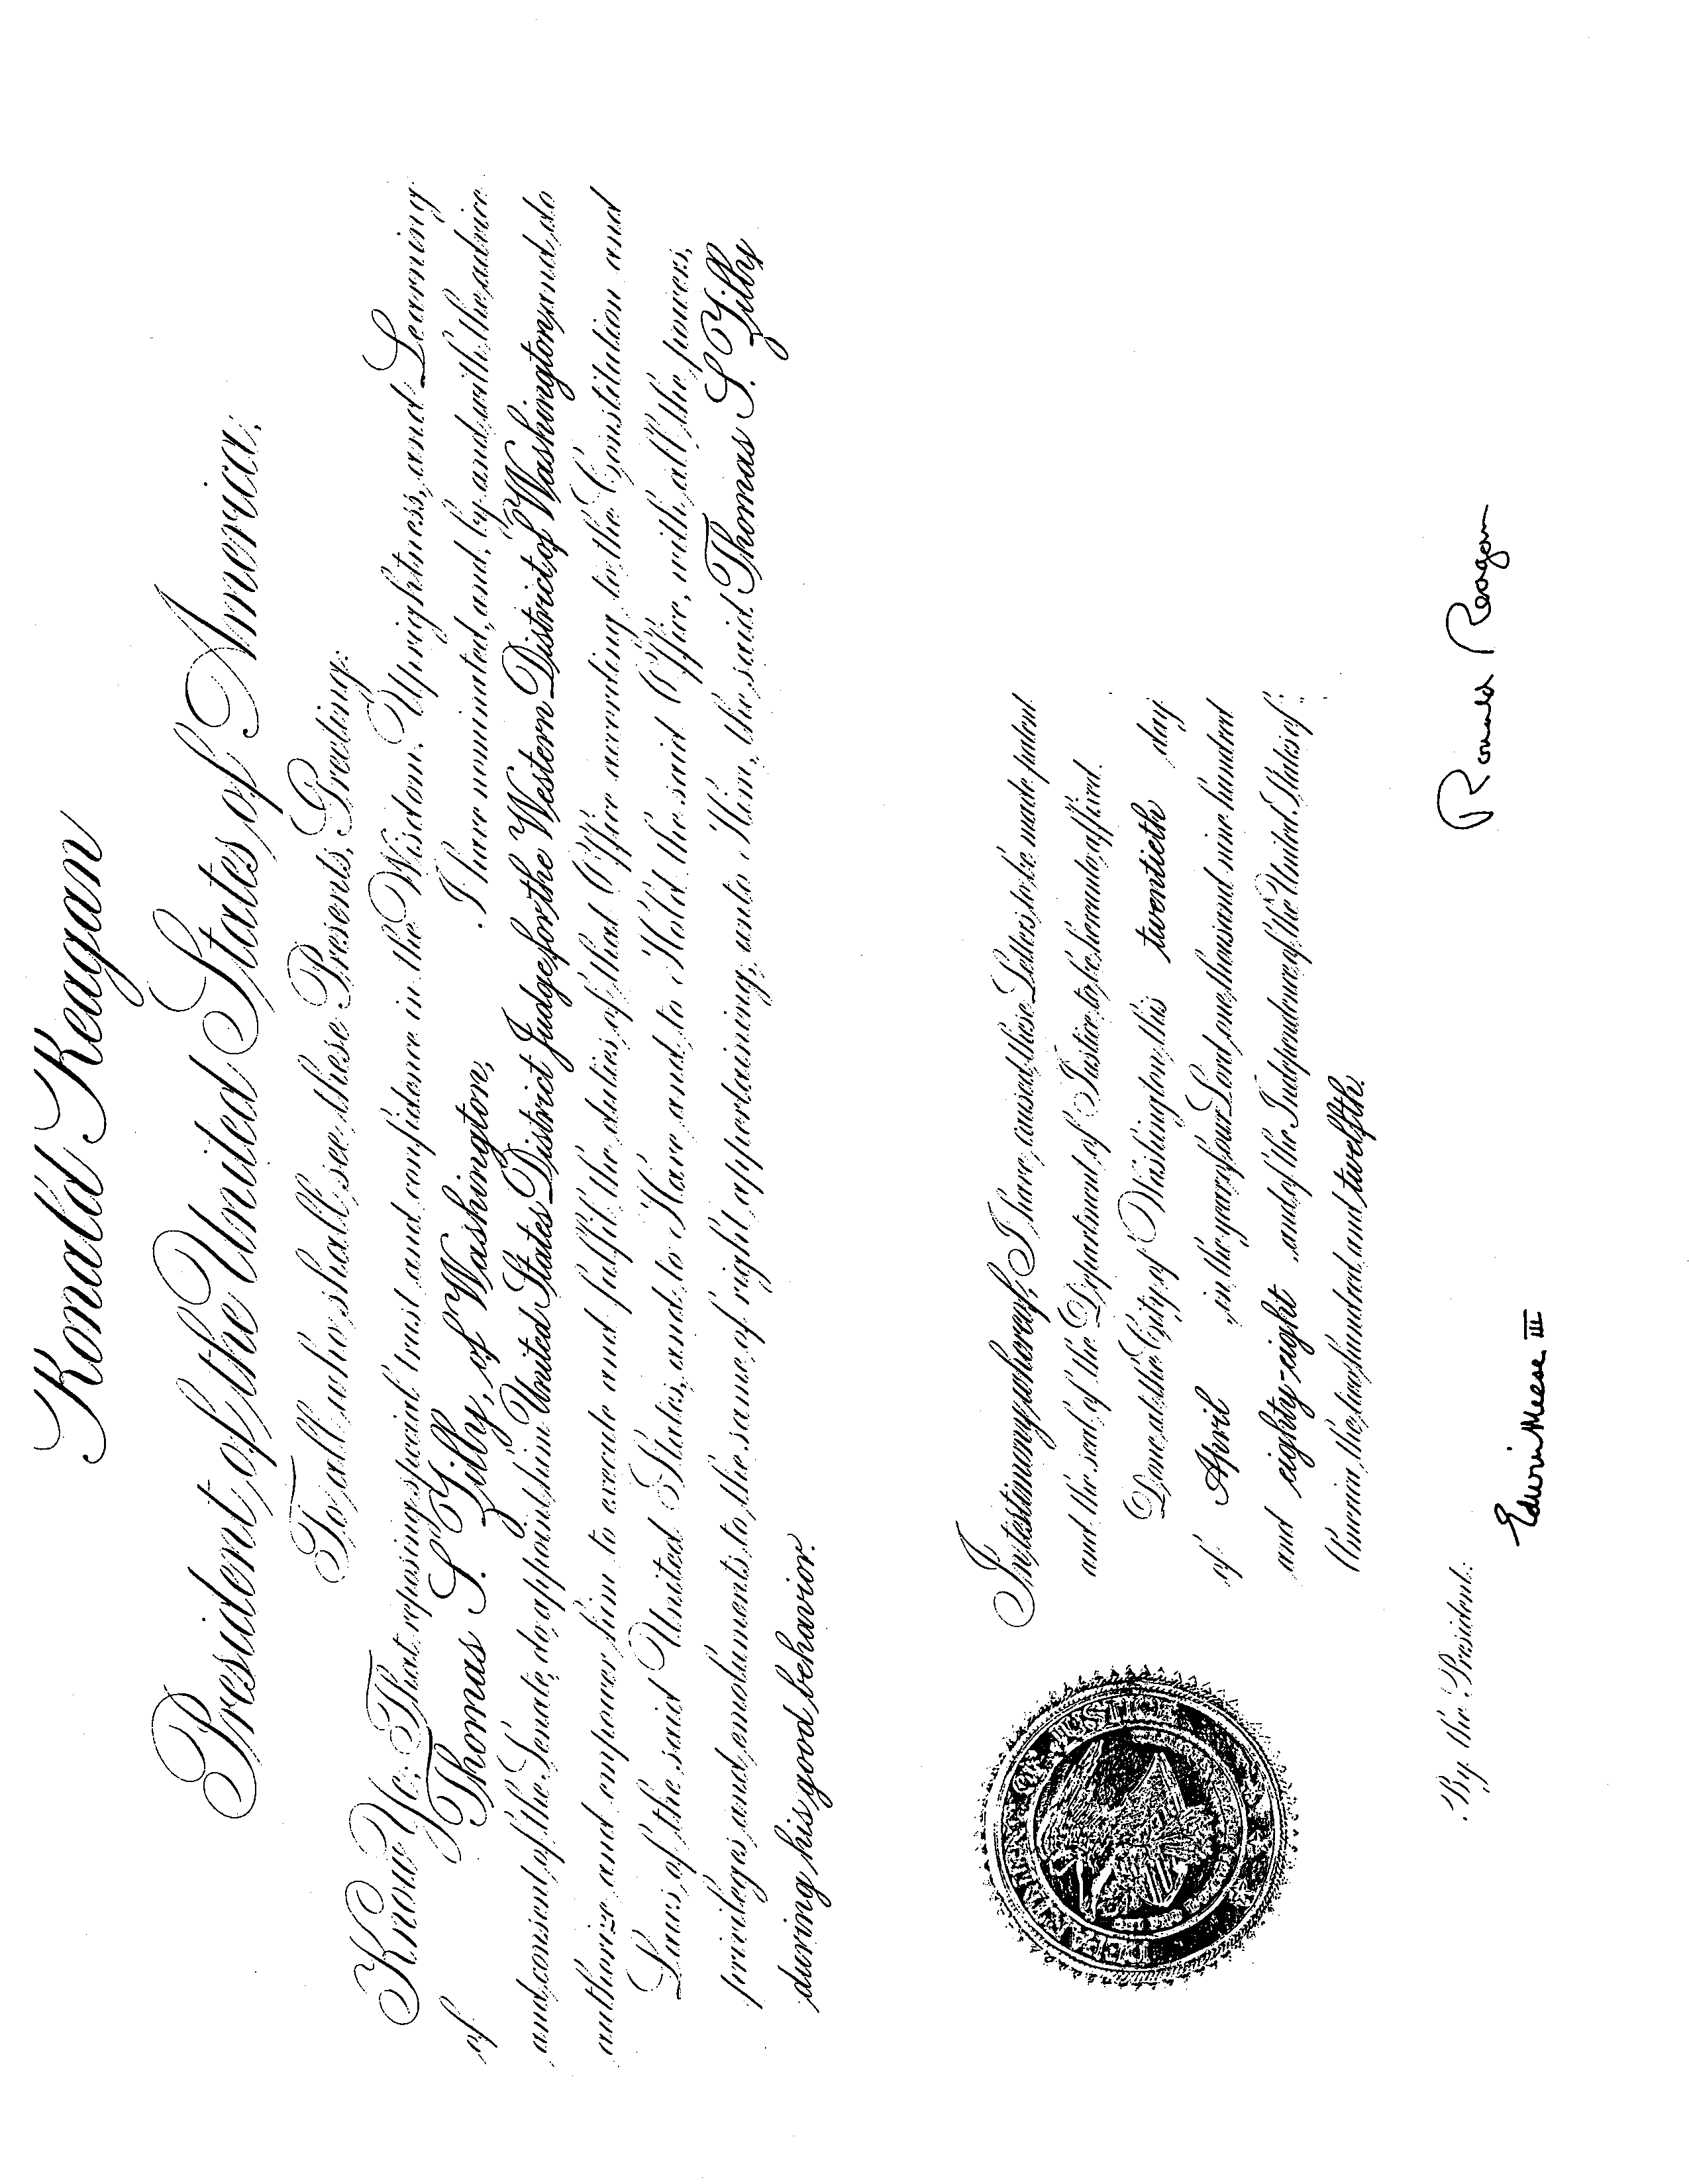 Ronald Reagan
President of the United States of America,
To all who shall see these Presents, Greeting:
Know Ye; That reposing special trust and confidence in the Wisdom, Uprightness, and Learning
of Thomas S. Zilly, of Washington, I have nominated, and, by and with the advice
and consent of the Senate, do appoint him United States District Judge for the Western District of Washington, and do
authorize and empower him to execute and fulfil the duties of that Office according to the Constitution and
Laws of the said United States, and to Have and to Hold the said Office, with all the powers,
privileges and emoluments to the same of right appertaining, unto Him, the said Thomas S. Zilly
during his good behavior.
In testimony whereof, I have caused these Letters to be made patent
and the seal of the Department of Justice to be hereunto affixed.
Done at the City of Washington this twentieth day
of April, in the year of our Lord one thousand nine hundred
and eighty-eight, and of the Independence of the United States of
America the two hundred and twelfth.
DEPARTMENT OF JUSTICE
Ronald Reagan
By the President:
Edwin Meese III